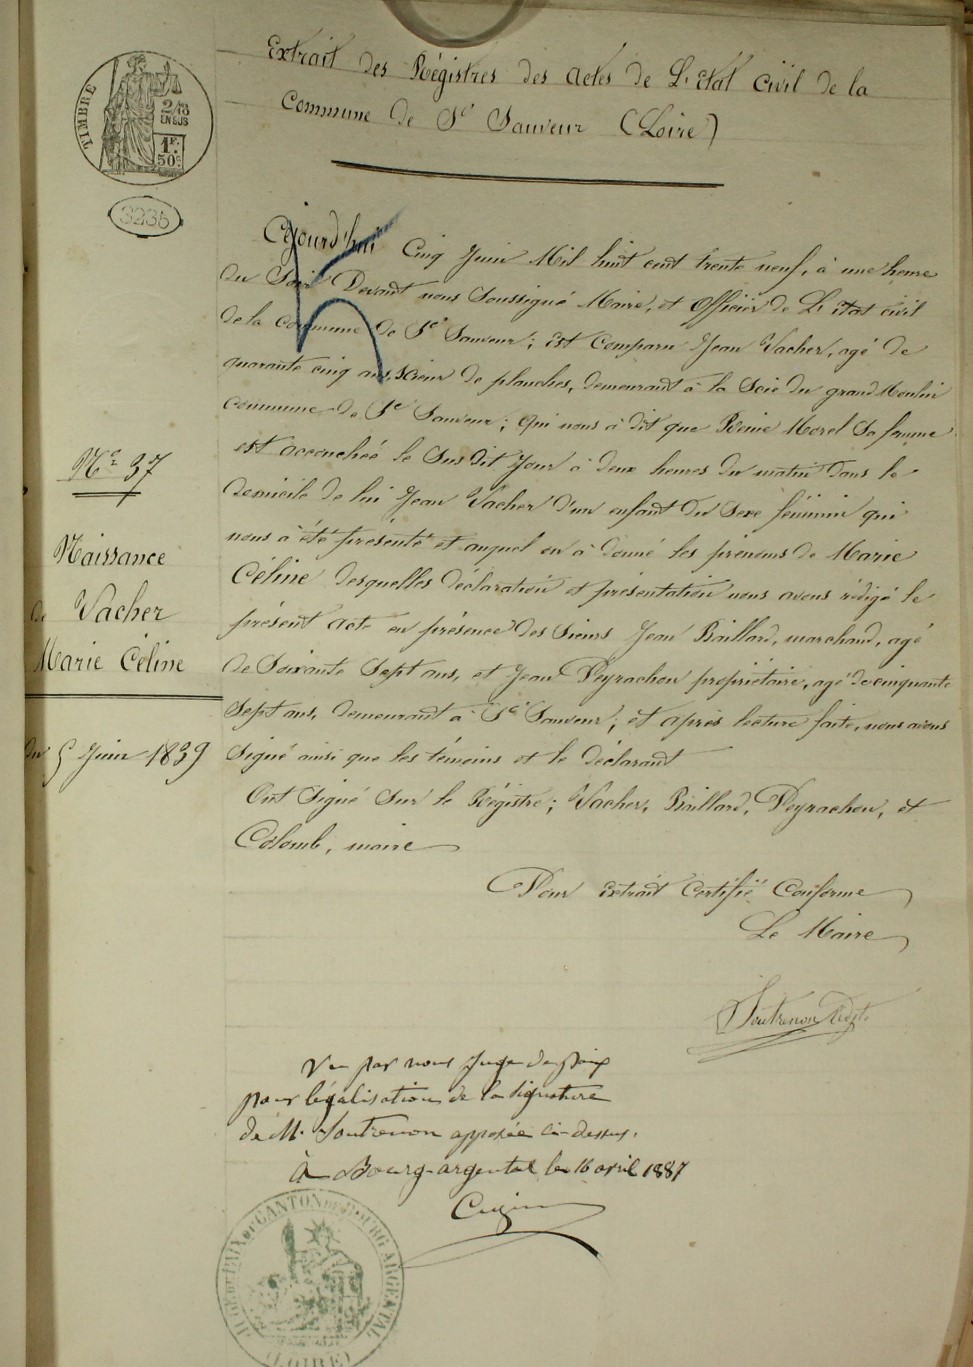 Extrait des Régistres des actes de L'Etat Civil de la
Commune de St Sauveur (Loire)
TIMBRE
2/10
EN SUS
1F.
50c.
3235
Cejourd'hui Cinq Juin Mil huit cent trente neuf, à une heure
du Soir Devant nous Soussigné Maire, et Officier de L'état civil
de la commune de St Sauveur; Est Comparu Jean Vacher, agé de
quarante cinq ans, scieur de planches, demeurant à la Scie du grand Moulin
commune de St Sauveur; qui nous à dit que Reine Morel Sa femme
est accouchée le Susdit Jour à deux heures du matin dans le
domicile de lui Jean Vacher d'un enfant du Sexe féminin qui
nous à été présenté et auquel on à donné les prénoms de Marie
Céline desquelles déclaration et présentation nous avons rédigé le
présent acte en présence des Sieurs Jean Baillard, marchand, agé
de Soixante Sept ans, et Jean Peyrachon propriétaire, agé de cinquante
Sept ans, demeurant à St Sauveur; et après lecture faite, nous avons
Signé ainsi que les témoins et le déclarant
Ont Signé Sur le Régistre; Vacher, Baillard, Peyrachon, et
Colomb, maire
No 37
Naissance
de Vacher
Marie Céline
du 5 Juin 1839
Pour extrait Certifié Conforme
Le Maire
Soutrenon
Vu par nous Juge de Paix
pour légalisation de la signature
de M. Soutrenon apposée ci-dessus.
à Bourg-argental le 16 avril 1887
JUGE DE PAIX DU CANTON DE BOURG-ARGENTAL
(LOIRE)